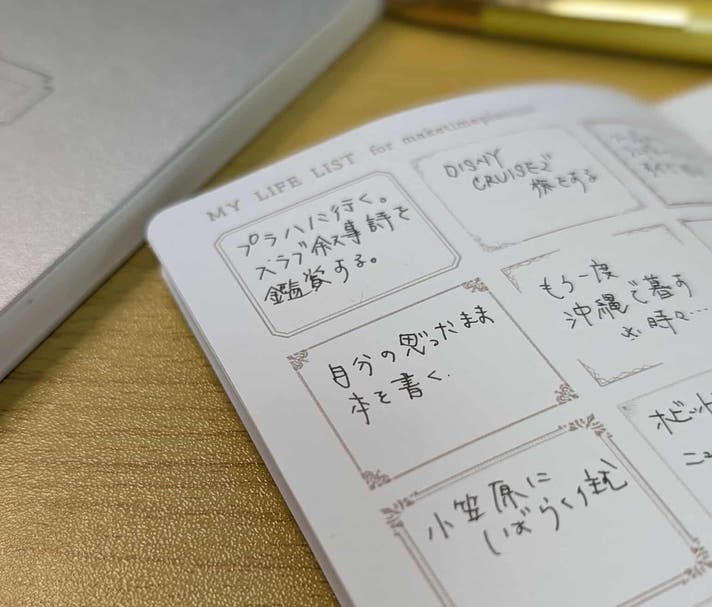 MY LIFE LIST for maketimeplanner
プラハに行く。
スラブ叙事詩を
鑑賞する。
DISNY
CRUISEで
旅をする
自分の思ったまま
本を書く.
もう一度
沖縄で暮す
※時々…
小笠原に
しばらく住む
ホビット
ニュ